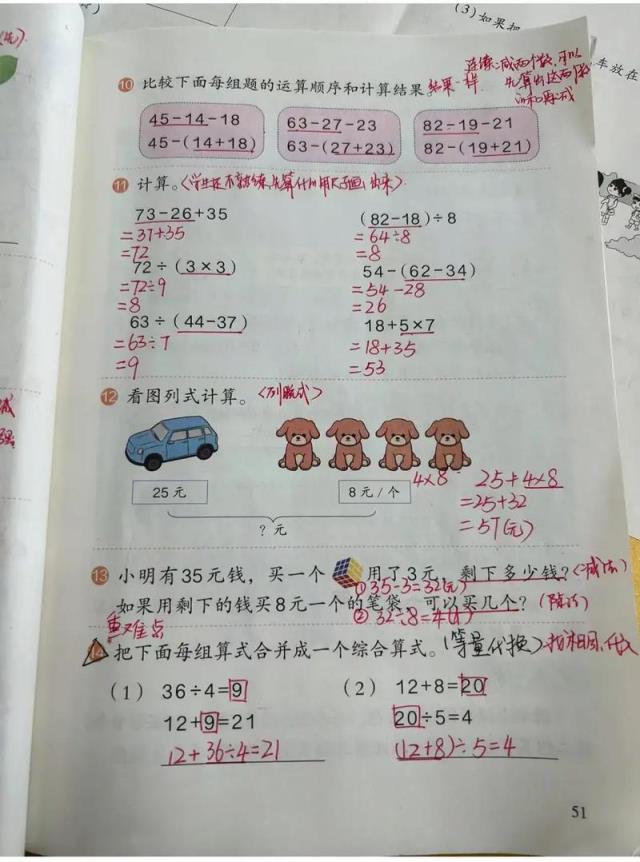 (3)如果把
车放在
⑩ 比较下面每组题的运算顺序和计算结果。结果一样
连续减两个数,可以
先算出这两个数
的和再减
45-14-18 63-27-23 82-19-21
45-(14+18) 63-(27+23) 82-(19+21)
⑪ 计算。
73-26+35 (82-18)÷8
=37+35 =64÷8
=72 =8
72÷(3×3) 54-(62-34)
=72÷9 =54-28
=8 =26
63÷(44-37) 18+5×7
=63÷7 =18+35
=9 =53
⑫ 看图列式计算。(列脱式)
25元 8元/个 4×8 25+4×8
=25+32
=57(元)
?元
⑬ 小明有35元钱,买一个 用了3元,剩下多少钱?(减法)
①35-3=32(元)
如果用剩下的钱买8元一个的笔袋,可以买几个?(除法)
②32÷8=4(个)
重难点
14 把下面每组算式合并成一个综合算式。(等量代换)找相同,代入
(1) 36÷4=9 (2) 12+8=20
12+9=21 20÷5=4
12+36÷4=21 (12+8)÷5=4
51